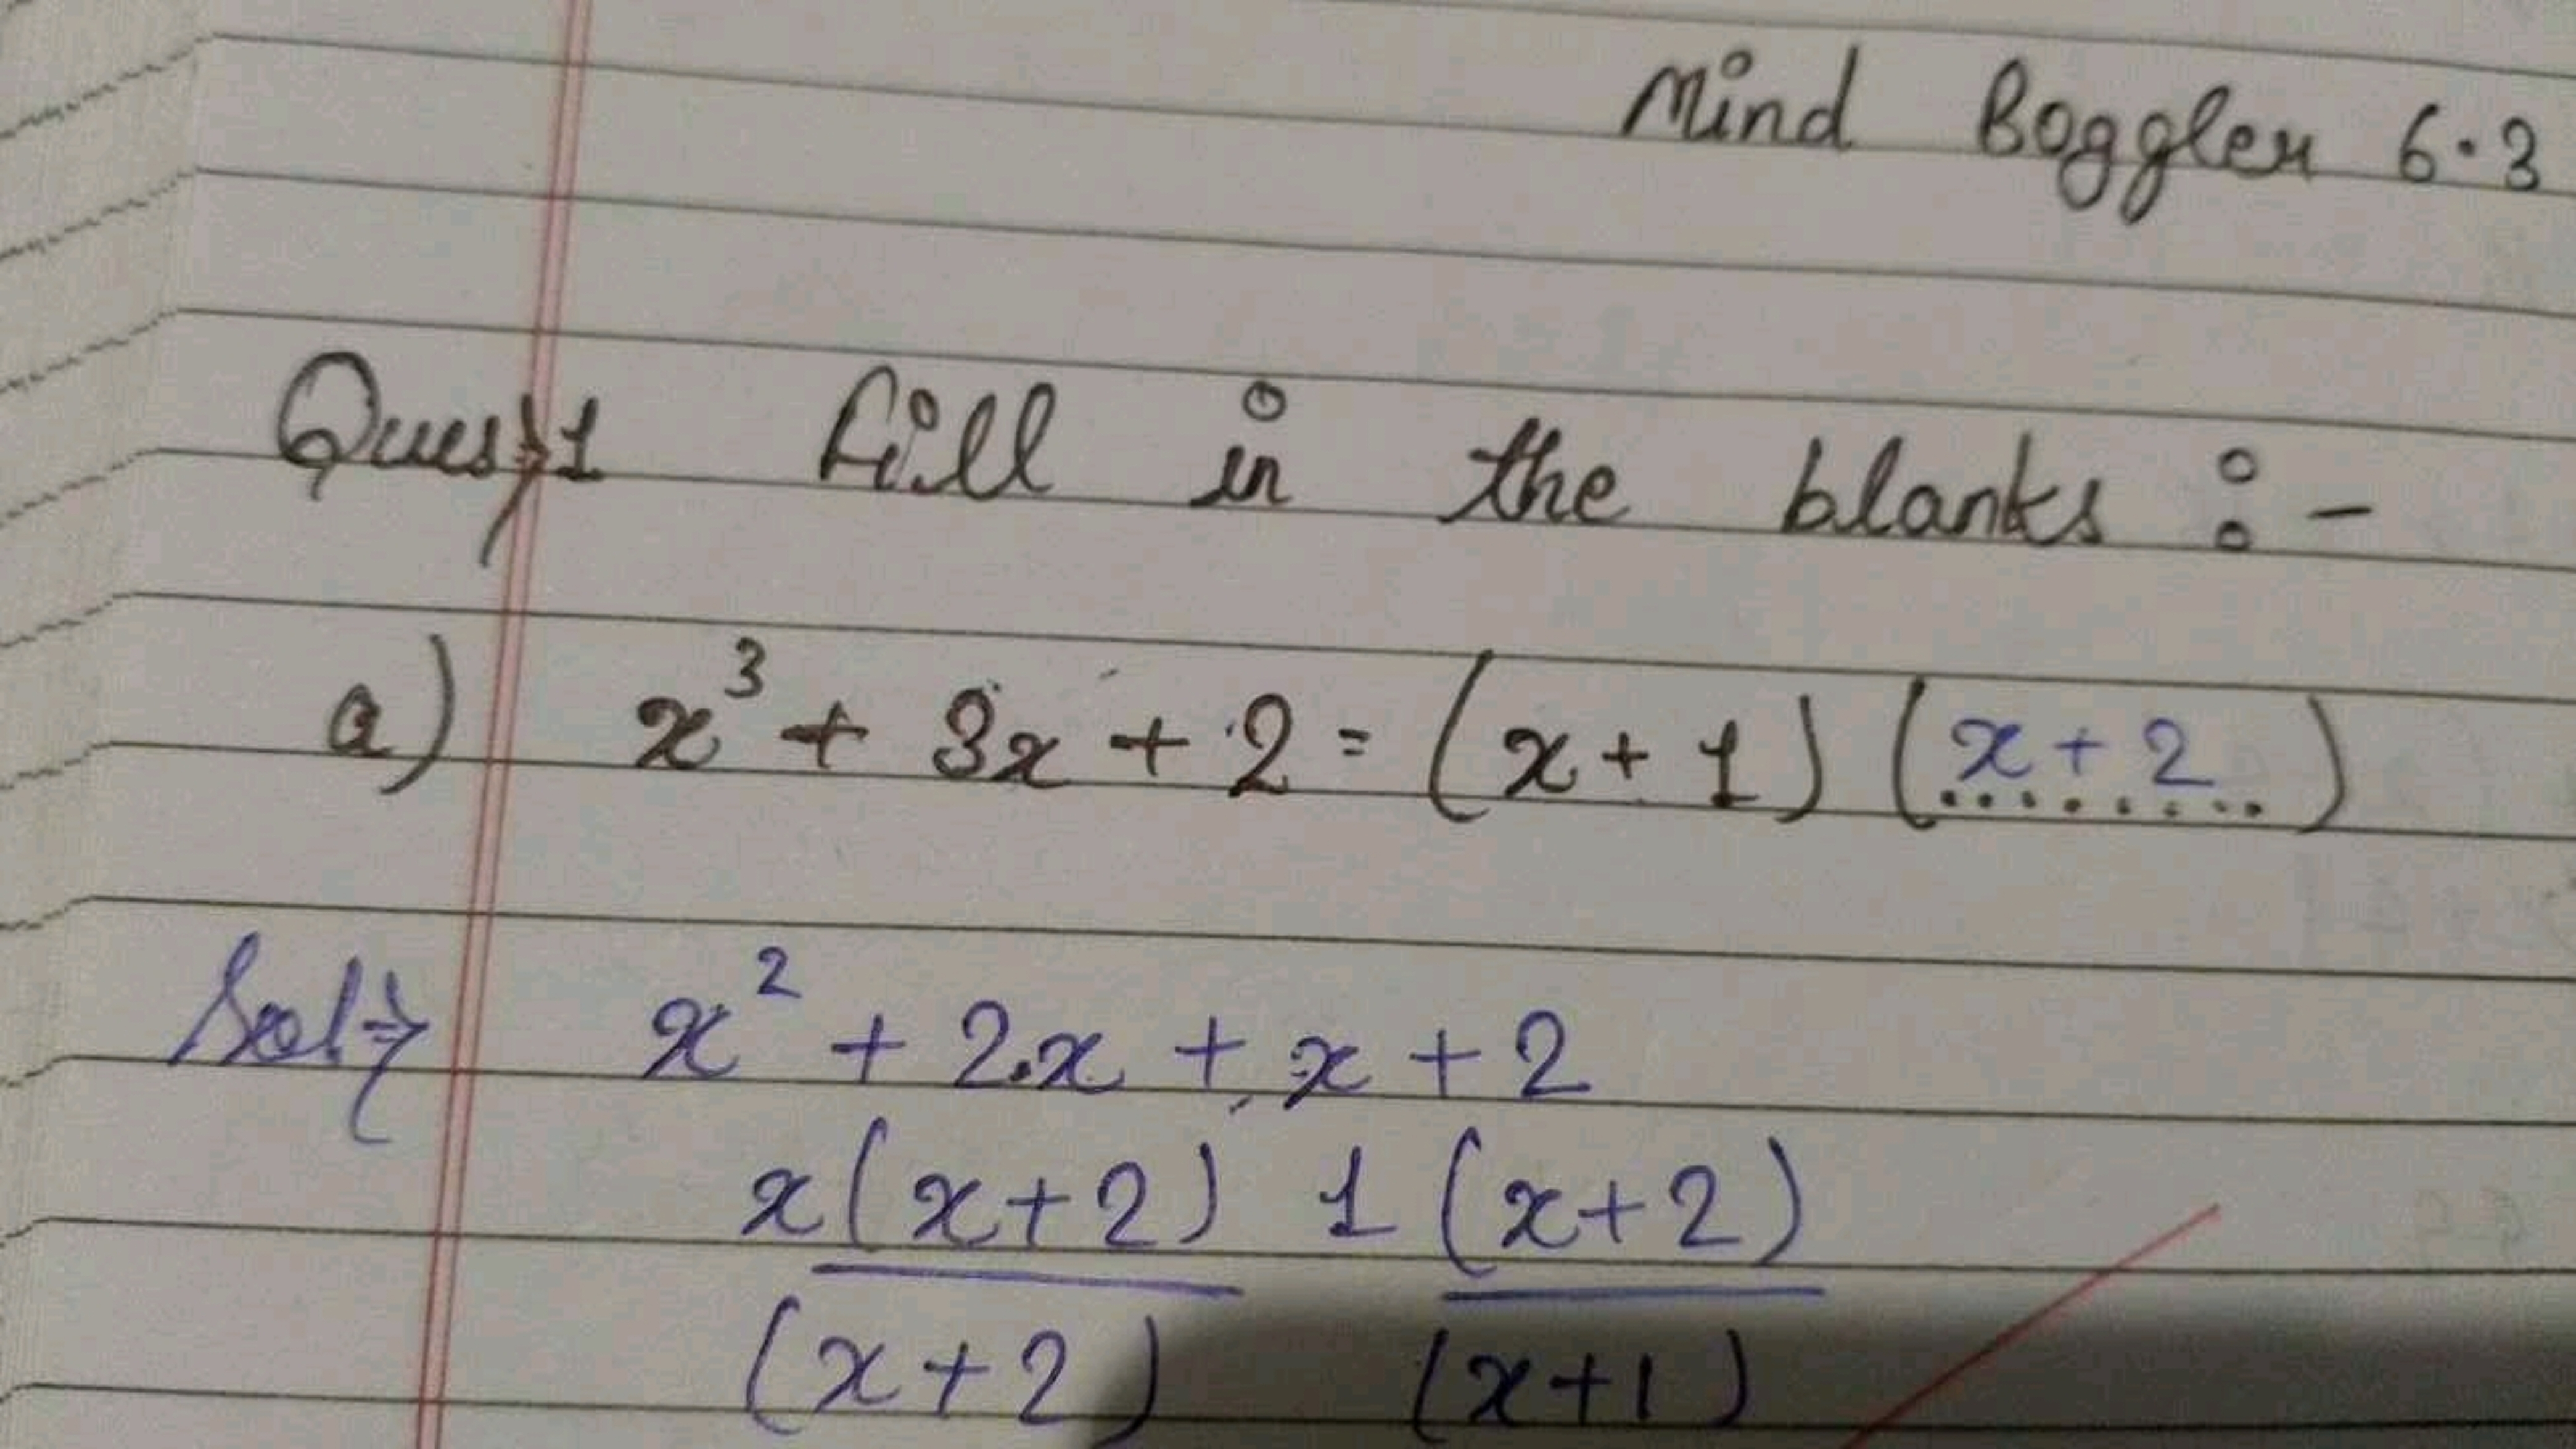 Mind Boggler 6.3
Ques⇒1 fill in the blanks :-
a) x³ + 3x + 2 = (x + 1) (x + 2)
Sol⇒ x² + 2x + x + 2
x(x+2) 1 (x+2)
(x+2) (x+1)